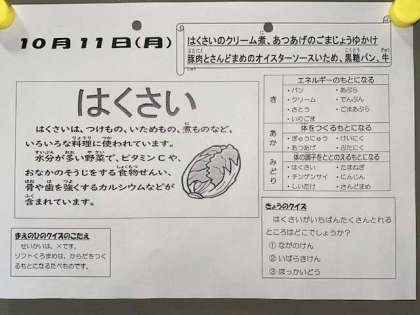 10月11日(月)
はくさいのクリーム煮、あつあげのごまじょうゆかけ
豚肉とさんどまめのオイスターソースいため、黒糖パン、牛
はくさい
はくさいは、つけもの、いためもの、煮ものなど、
いろいろな料理に使われています。
水分が多い野菜で、ビタミンCや、
おなかのそうじをする食物せんい、
骨や歯を強くするカルシウムなどが
含まれています。
エネルギーのもとになる
き
・パン ・あぶら
・クリーム ・でんぷん
・さとう ・ごまあぶら
・いりごま
体をつくるもとになる
あか
・ぎゅうにゅう ・けいにく
・あつあげ ・ぶたにく
体の調子をととのえるもとになる
みどり
・はくさい ・たまねぎ
・チンゲンサイ ・にんじん
・しいたけ ・さんどまめ
まえのひのクイズのこたえ
せいかいは、×です。
ソフトくろまめは、からだをつく
るもとになるたべものです。
きょうのクイズ
はくさいがいちばんたくさんとれる
ところはどこでしょうか？
①ながのけん
②いばらきけん
③ほっかいどう